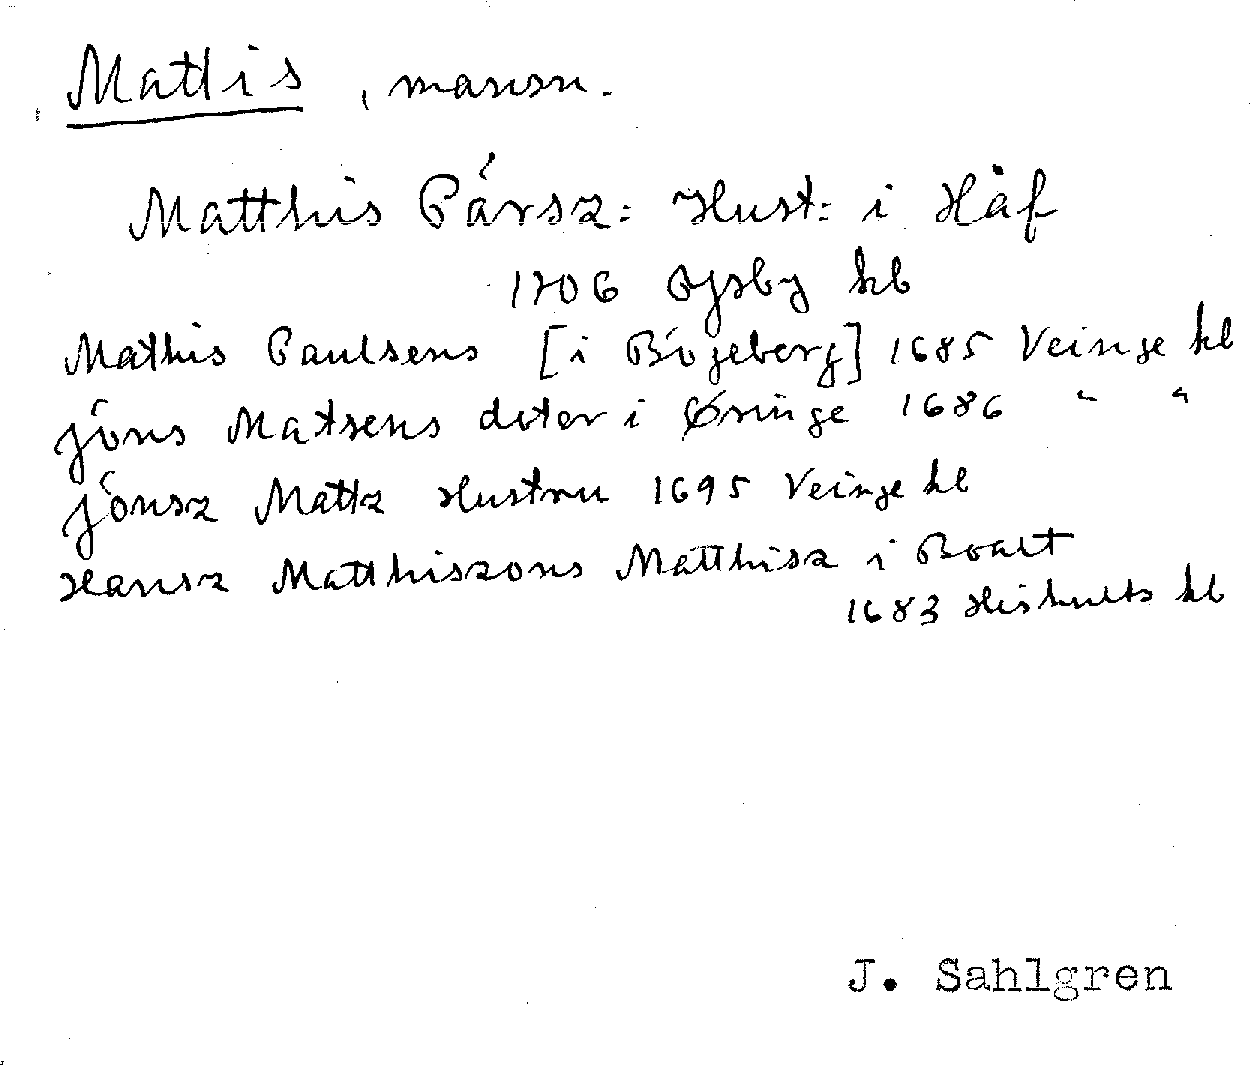 Mattis, mansn.
Matthis Pärsz: Hust: i Håf
1706 Øysby kb
Mathis Paulsens [i Bögeberg] 1685 Veinge kb
Jöns Matsens doter i Øringe 1686 " "
Jönsz Mattz Hustru 1695 Veinge kb
Hansz Matthiszons Matthisz i Boalt
1683 Hishults kb
J. Sahlgren